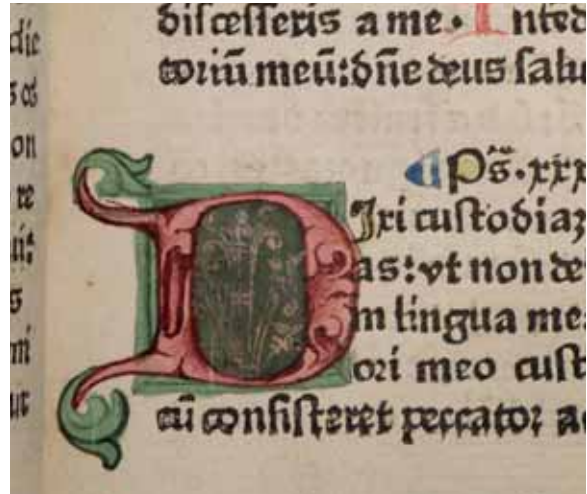 die
s os
on
re
ni:
s
mi
ur
discesseris a me. Inted
toriū meū: dñe deus salu
Ps̄. xxx
Dixi custodiaʒ
as: vt non de
in lingua me
ori meo cust
cū consisteret peccator a